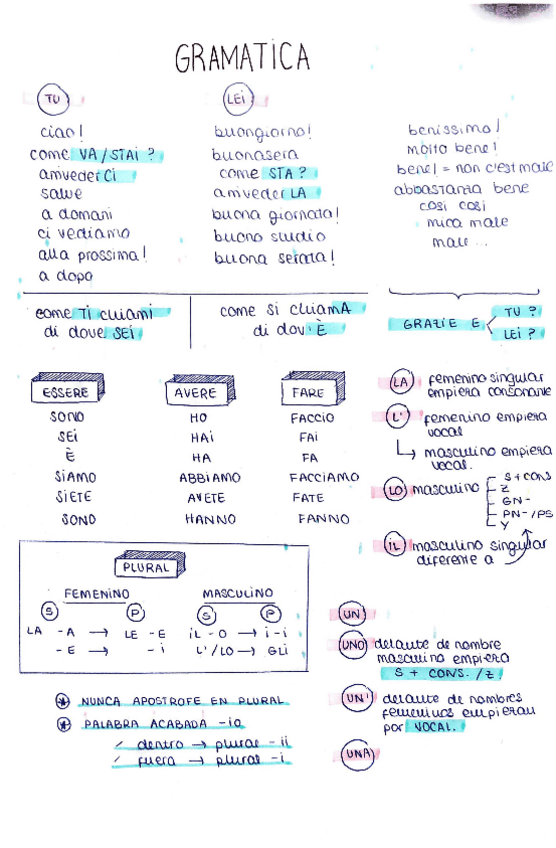 GRAMATICA
TU
ciao!
come VA/STAI?
arrivederCI
salve
a domani
ci vediamo
alla prossima!
a dopo
LEI
buongiorno!
buonasera
come STA?
arrivederLA
buona giornata!
buono studio
buona serata!
benissimo!
molto bene!
bene! = non c'est male
abbastanza bene
cosi cosi
mica male
male...
come TI chiami
di dove SEI
come si chiamA
di dov'È
GRAZIE E
TU?
LEI?
ESSERE
SONO
SEI
È
SIAMO
SIETE
SONO
AVERE
HO
HAI
HA
ABBIAMO
AVETE
HANNO
FARE
FACCIO
FAI
FA
FACCIAMO
FATE
FANNO
LA femenino singular
empieza consonante
L' femenino empieza
vocal
↳ masculino empieza
vocal.
LO masculino
S+CONS
Z
GN-
PN-/PS
Y
IL masculino singular
diferente a
PLURAL
FEMENINO
S P
LA -A → LE -E
-E → -i
MASCULINO
S P
iL -O → i -i
L'/LO → GLI
NUNCA APOSTROFE EN PLURAL
PALABRA ACABADA -io
dentro → plural -ii
fuera → plural -i
UN
UNO delante de nombre
masculino empieza
S + CONS. /Z
UN' delante de nombres
femeninos empiezan
por VOCAL.
UNA